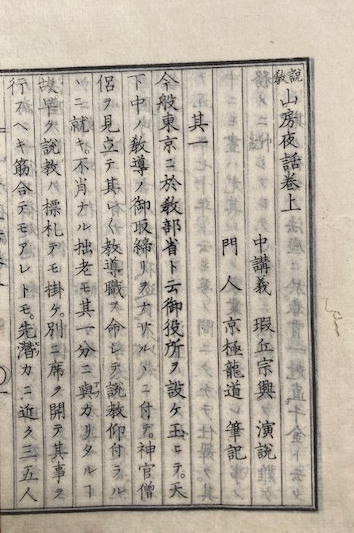 説教 山房夜話巻上
中講義 瑕丘宗興 演説
門人 京極龍道 筆記
其一
今般東京ニ於敎部省ト云御役所ヲ設ケ玉ヒテ。天
下中ヘ敎導ノ御取締リヲナサルヽニ付テ。神官僧
侶ヲ見立テ其レ〱敎導職ヲ命シテ説敎仰付ラル
ヽニ就キ。不肖ナル拙老モ其一分ニ與カリタルヿ
故早ク説敎ハ標札テモ掛ケ。別ニ席ヲ開テ其事ヲ
行フヘキ筋合テモアレトモ。先潜カニ近ク三五人